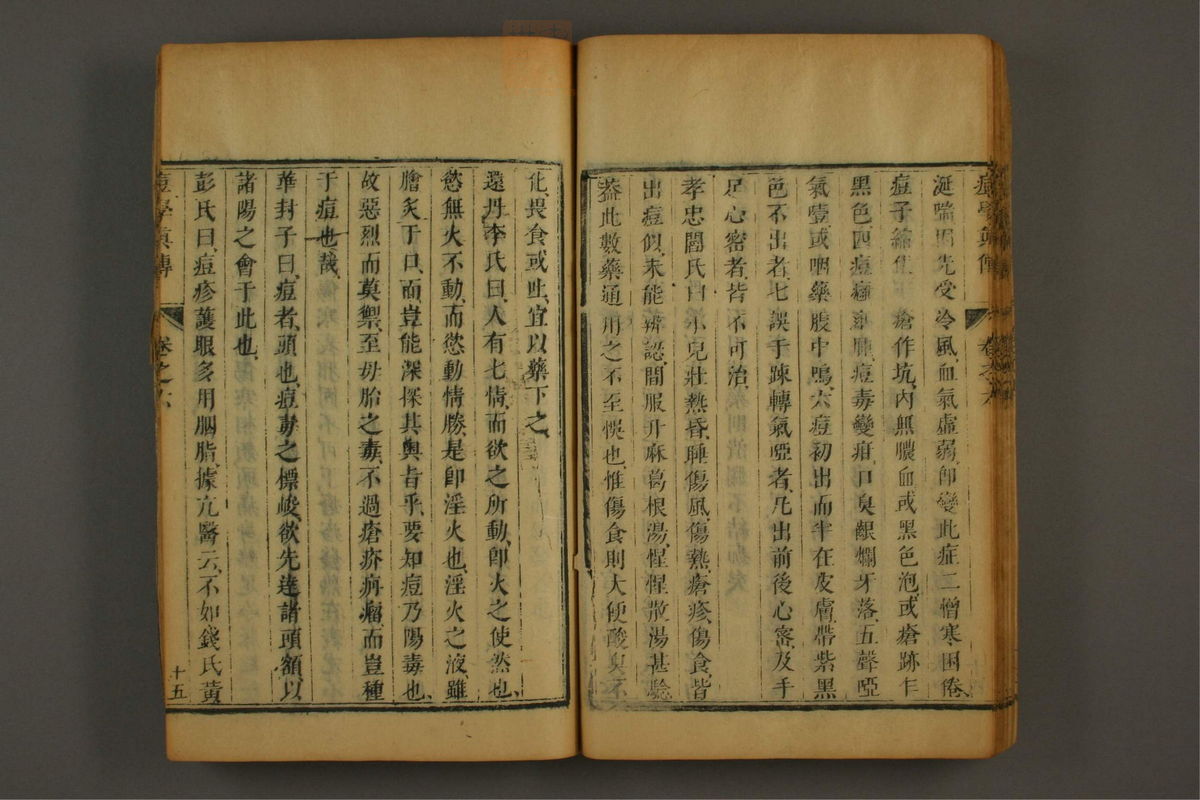 痘學眞傳 卷之六
涎喘因先受冷風血氣虛弱卽變此症二憎寒困倦
痘子綿住 瘡作坑內無膿血或黑色泡或瘡跡乍
黑色四痘癰 腫痘毒變疳口臭齦爛牙落五聲啞
氣噎或咽藥腹中鳴六痘初出而半在皮膚帶紫黑
色不出者七誤于踈轉氣啞者凡出前後心窩及手
足心密者皆不可治
孝忠閻氏曰小兒壯熱昏睡傷風傷熱瘡疹傷食皆
出痘似未能辨認間服升麻葛根湯惺惺散湯甚驗
蓋此數藥通用之不至悞也惟傷食則大便酸臭不
化畏食或吐宜以藥下之
還丹李氏曰人有七情而欲之所動卽火之使然也
慾無火不動而慾動情勝是卽淫火也淫火之液雖
膾炙于口而豈能深探其奧旨乎要知痘乃陽毒也
故惡烈而莫禦至毋胎之毒不過瘡疥痈瘤而豈種
于痘也哉
華封子曰痘者頭也痘毒之標峻欲先達諸頭額以
諸陽之會于此也
彭氏曰痘疹護眼多用胭脂據亢醫云不如錢氏黄
痘學眞傳 卷之六 十五